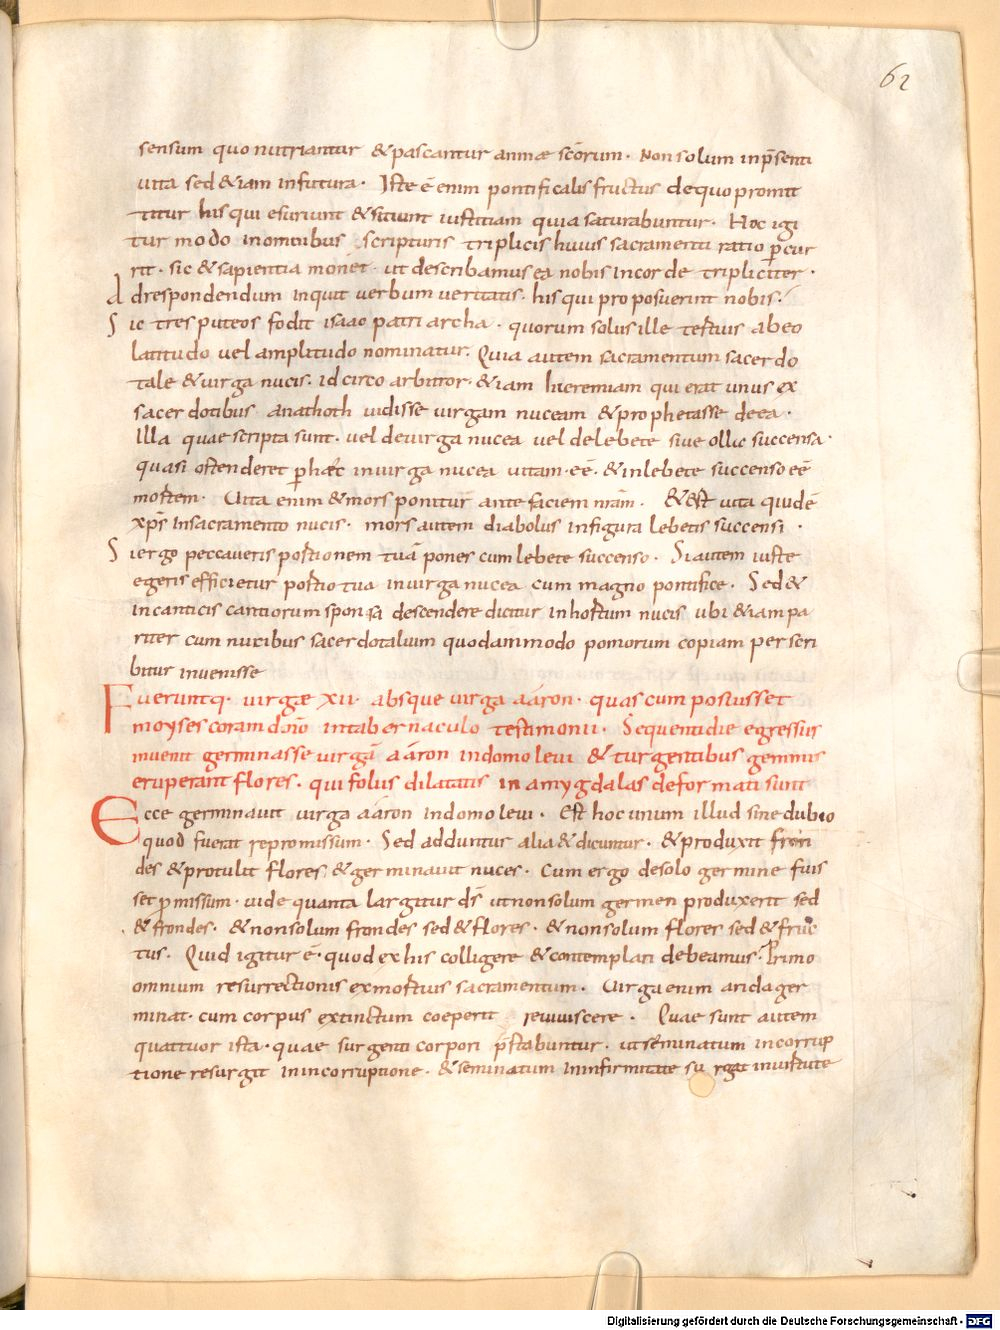 62
sensum quo nutriantur & pascantur animae scōrum. Non solum in p̄senti
uita sed & iam in futura. Iste ē enim pontificalis fructus de quo promit
titur his qui esuriunt & sitiunt iustitiam quia saturabuntur. Hoc igi
tur modo in omnibus scripturis triplicis huius sacramenti ratio p̄cur
rit. sic & sapientia monet. ut describamus ea nobis in corde tripliciter.
Ad respondendum inquit uerbum ueritatis. his qui proposuerint nobis.
Sic tres puteos fodit isaac patriarcha. quorum solus ille tertius ab eo
latitudo uel amplitudo nominatur. Quia autem sacramentum sacerdo
tale & uirga nucis. idcirco arbitror. & iam hieremiam qui erat unus ex
sacerdotibus anathoth uidisse uirgam nuceam & prophetasse de ea.
Illa quae scripta sunt. uel de uirga nucea uel de lebete siue ollę succensa.
quasi ostenderet p̄ haec in uirga nucea uitam. eē. & in lebete succenso eē
mortem. Uita enim & mors ponitur ante faciem nr̄am. & est uita quidē
xp̄s In sacramento nucis. mors autem diabolus in figura lebetis succensi.
Si ergo peccaueris portionem tuā pones cum lebete succenso. Si autem iuste
egeris efficietur portio tua in uirga nucea cum magno pontifice. Sed &
in canticis canticorum sponsa descendere dicitur in hortum nucis ubi & iam pa
riter cum nucibus sacerdotalium quodammodo pomorum copiam perscri
bitur inuenisse
Fueruntq. uirgae xii. absque uirga aaron. quas cum posuisset
moyses coram dn̄o in tabernaculo testimonii. Sequenti die egressus
inuenit germinasse uirgā aaron in domo leui & turgentibus gemmis
eruperant flores. qui foliis dilatatis in amygdalas deformati sunt
Ecce germinauit uirga aaron in domo leui. Est hoc unum illud sine dubio
quod fuerat repromissum. Sed adduntur alia & dicuntur. & produxit fron
des & protulit flores & germinauit nuces. Cum ergo de solo germine fuis
set p̄missum. uide quanta largitur ds̄ ut non solum germen produxerit sed
& frondes. & non solum frondes sed & flores. & non solum flores sed & fruc
tus. Quid igitur ē. quod ex his colligere & contemplari debeamus. Primo
omnium resurrectionis ex mortuis sacramentum. Uirga enim arida ger
minat. cum corpus extinctum coeperit reuiuiscere. Quae sunt autem
quattuor ista. quae surgenti corpori p̄stabuntur. ut seminatum in corrup
tione resurgit in incorruptione. & seminatum in infirmitate surgat in uirtute
Digitalisierung gefördert durch die Deutsche Forschungsgemeinschaft - DFG